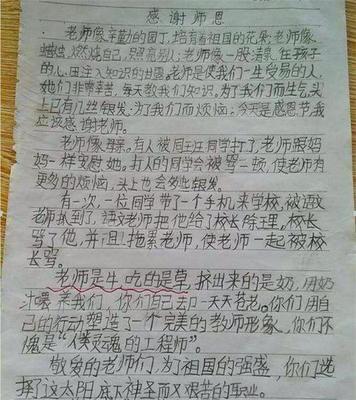 感谢师恩
老师像辛勤的园丁,培育着祖国的花朵;老师像
蜡烛,燃烧自己,照亮别人;老师像一股清泉,在孩子
的心田注入知识的甘露。老师是使我们一生受易的人,
她们非常辛苦,每天教我们知识。为了我们而生气,头
上已有几丝银发;为了我们而烦恼;今天是感恩节,我
应该感谢老师。
老师像母亲。有人被同班同学打了,老师跟妈
妈一样安慰她。打人的同学会被骂一顿,使老师有
更多的烦恼,头上也会多些银发。
有一次,一位同学带了一个手机来学校,被语文
老师抓到了,语文老师把他给了校长除理。校长
骂了他,并且拖累老师,使老师一起被校
长骂。
老师是牛,吃的是草,挤出来的是奶,用奶
汁喂养我们,你们自己去一天天苍老。你们用自
己的行动塑造了一个完美的教师形象,你们不
愧是“人类灵魂的工程师”。
敬爱的老师们,为了祖国的强盛,你们选
择了这太阳底下神圣而又艰苦的事业。